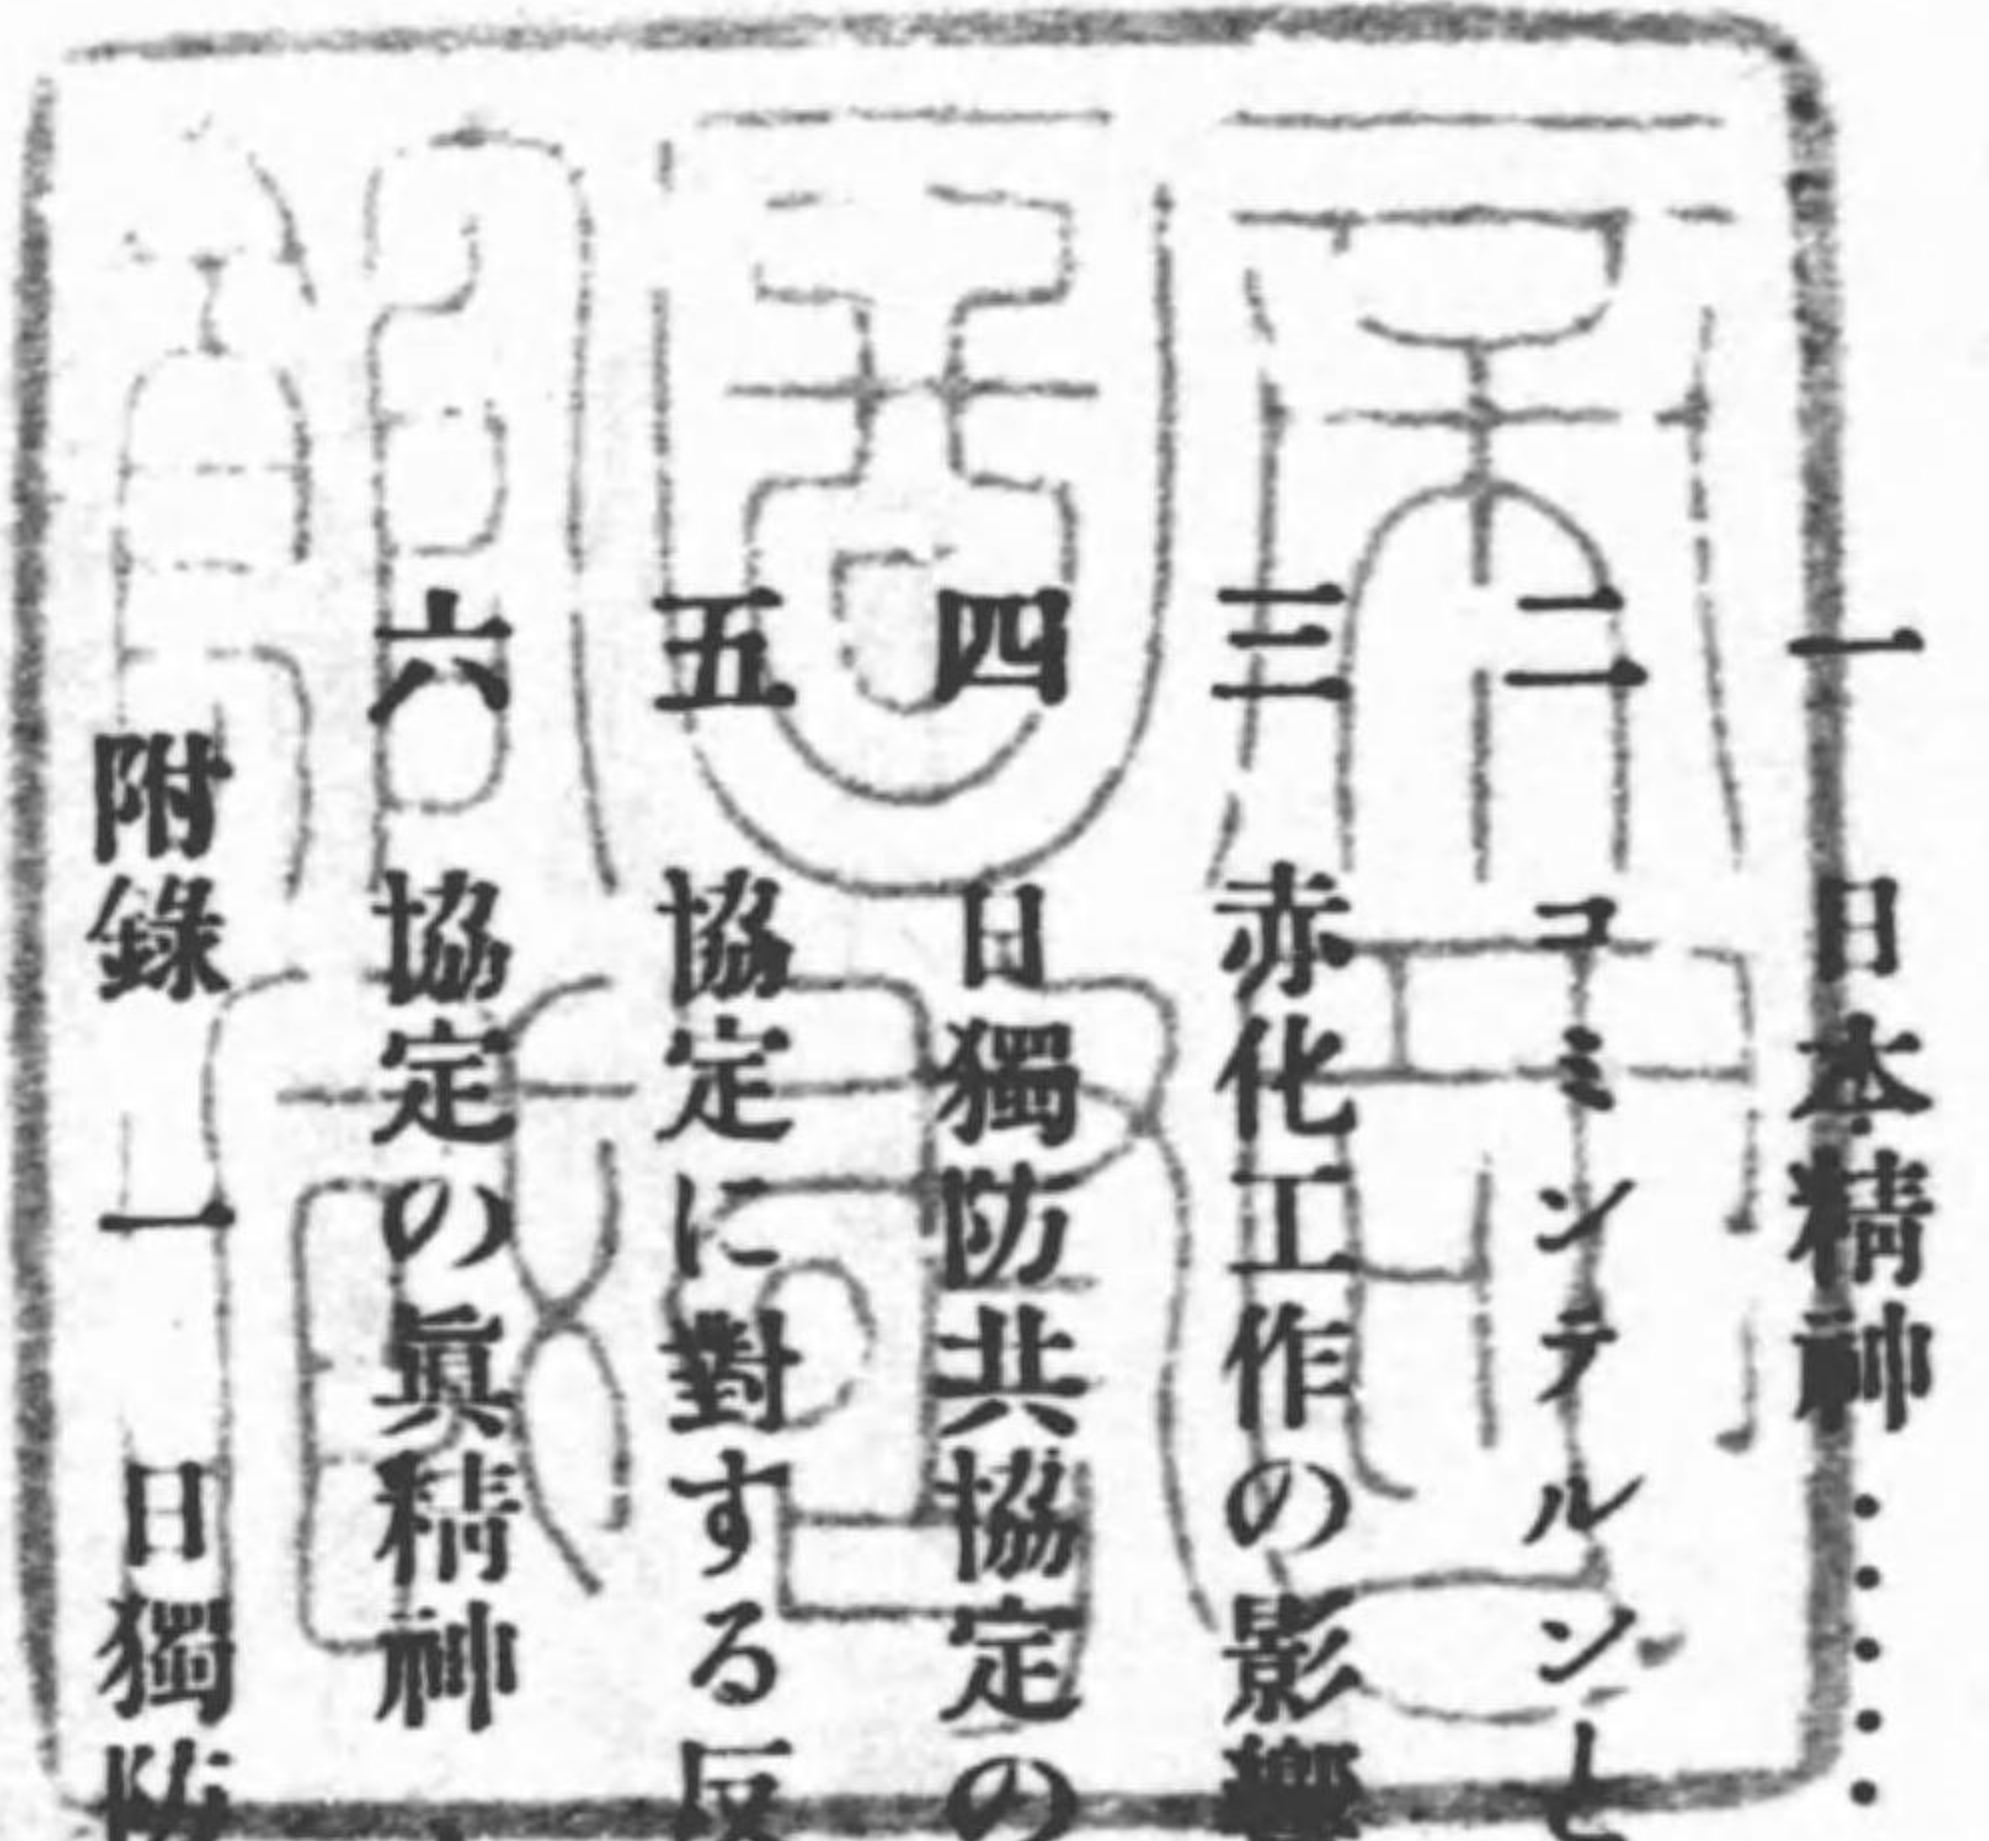 一 日本精神……
二 コミンテルンと
三 赤化工作の影響
四 日獨防共協定の
五 協定に對する反
六 協定の眞精神
附錄 一 日獨防